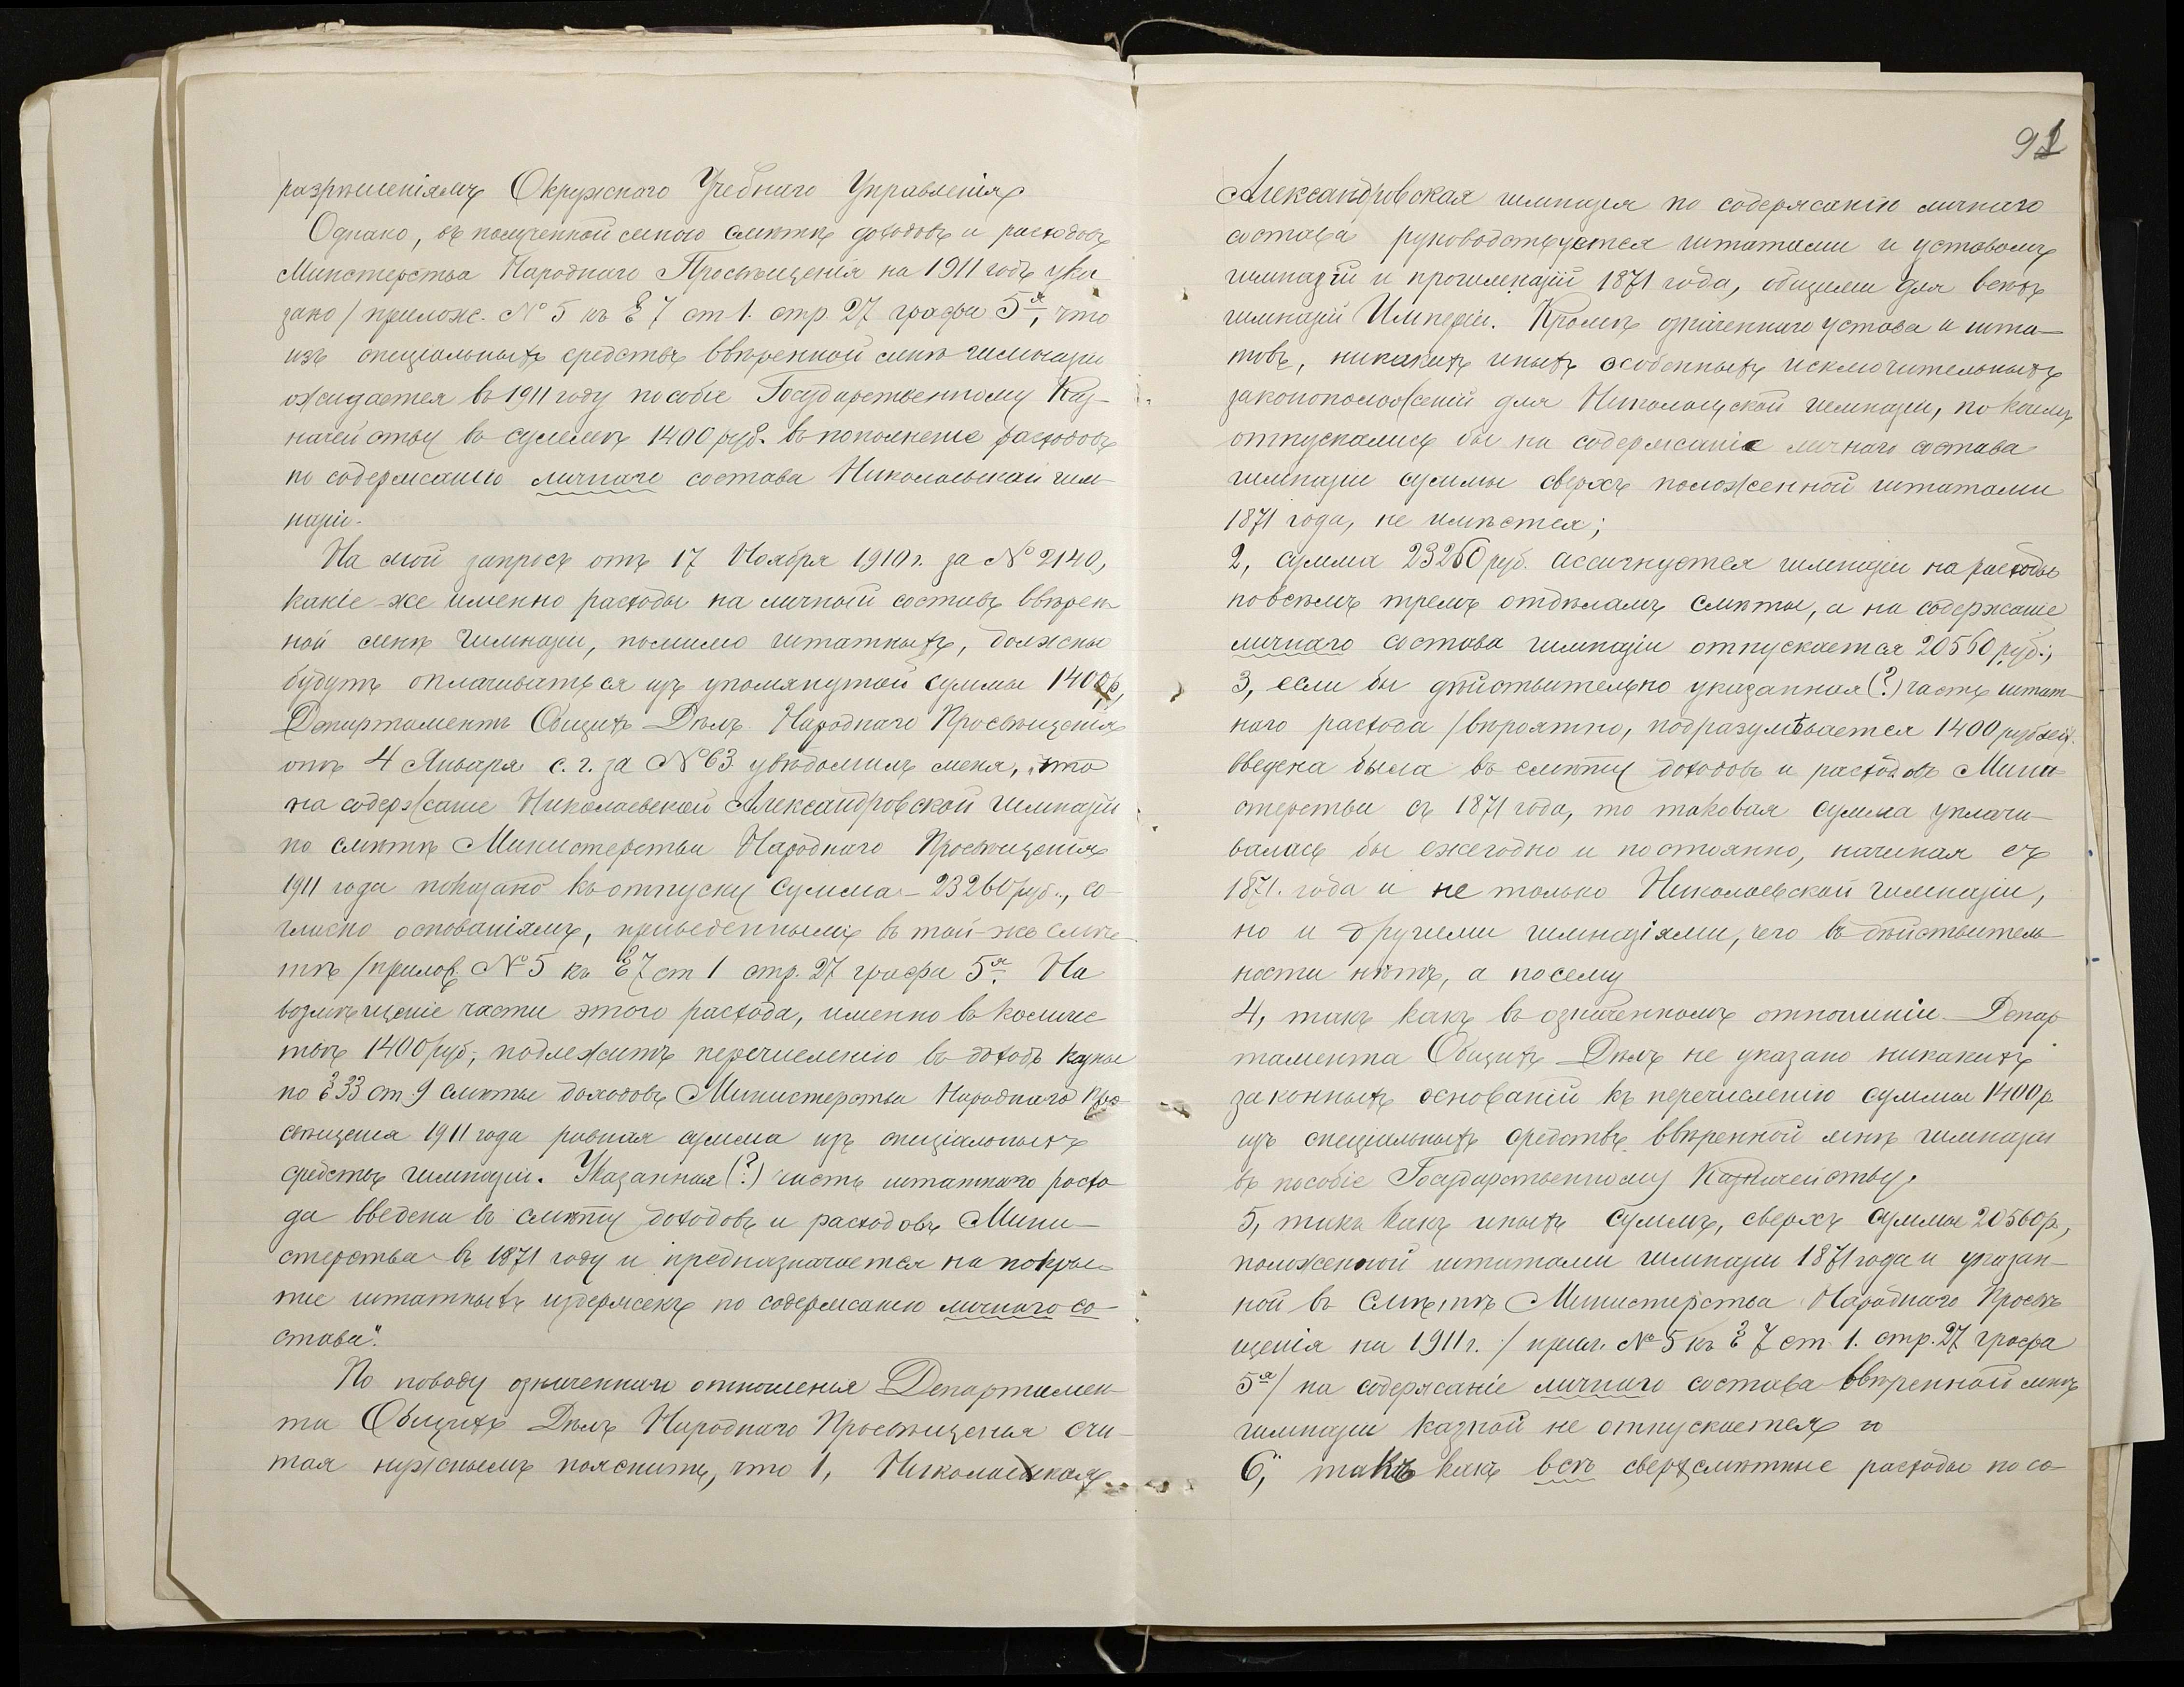 разрѣшеніямъ Окружного Учебнаго Управленія
Однако, въ полученной мною смѣтѣ доходовъ и расходовъ
Министерства Народнаго Просвѣщенія на 1911 годъ ука-
зано /прилож. № 5 къ § 7 ст 1. стр. 27 графа 5я, что
изъ спеціальныхъ средствъ ввѣренной мнѣ гимназіи
ожидается въ 1911 году пособіе Государственному Каз-
начейству въ суммѣ 1400 руб. въ пополненіе расходовъ
по содержанію личнаго состава Николаевской гим-
назіи.
На мой запросъ отъ 17 Ноября 1910 г. за № 2140,
какіе-же именно расходы на личный составъ ввѣрен-
ной мнѣ гимназіи, помимо штатныхъ, должны
будутъ оплачиваться изъ упомянутой суммы 1400 р,
Департаментъ Общихъ Дѣлъ Народнаго Просвѣщенія
отъ 4 Января с. г. за № 63 увѣдомилъ меня, „что
на содержаніе Николаевской Александровской гимназіи
по смѣтѣ Министерства Народнаго Просвѣщенія
1911 года показано къ отпуску сумма – 23260 руб., со-
гласно основаніямъ, приведеннымъ въ той-же смѣ-
тѣ /прилож. № 5 къ § 7 ст 1 стр. 27 графа 5я. На
возмѣщеніе части этого расхода, именно въ количес
твѣ 1400 руб, подлежитъ перечисленію въ доходъ казны
по § 33 ст 9 смѣты доходовъ Министерства Народнаго Про-
свѣщенія 1911 года равная сумма изъ спеціальныхъ
средствъ гимназіи. Указанная (?) часть штатнаго расхо
да введена въ смѣту доходовъ и расходовъ Мини-
стерства въ 1871 году и предназначается на покры-
тіе штатныхъ издержекъ по содержанію личнаго со-
става".
По поводу означеннаго отношенія Департамен-
та Общихъ Дѣлъ Народнаго Просвѣщенія счи-
тая нужнымъ пояснить, что 1, Николаевская
91
Александровская гимназія по содержанію личнаго
состава руководствуется штатами и уставомъ
гимназій и прогимназій 1871 года, общими для всѣхъ
гимназій Имперіи. Кромѣ означеннаго устава и шта-
товъ, никакихъ иныхъ особенныхъ исключительныхъ
законоположеній для Николаевской гимназіи, по коимъ
отпускались бы на содержаніе личнаго состава
гимназіи суммы сверхъ положенной штатами
1871 года, не имѣется;
2, сумма 23260 руб. ассигнуется гимназіи на расходы
по всѣмъ тремъ отдѣламъ смѣты, а на содержаніе
личнаго состава гимназіи отпускается 20560 руб.;
3, если бы дѣйствительно указанная (?) часть штат-
наго расхода /вѣроятно, подразумѣвается 1400 рублей
введена была въ смѣту доходовъ и расходовъ Мини-
стерства съ 1871 года, то таковая сумма уплачи-
валась бы ежегодно и постоянно, начиная съ
1871. года и не только Николаевской гимназіи,
но и другими гимназіями, чего въ дѣйствитель-
ности нѣтъ, а посему
4, такъ какъ въ означенномъ отношеніи Депар-
тамента Общихъ Дѣлъ не указано никакихъ
законныхъ основаній къ перечисленію суммы 1400 р
изъ спеціальныхъ средствъ ввѣренной мнѣ гимназіи
въ пособіе Государственному Казначейству,
5, такъ какъ иныхъ суммъ, сверхъ суммы 20560 р,
положенной штатами гимназіи 1871 года и указан-
ной въ смѣтѣ Министерства Народнаго Просвѣ
щенія на 1911 г. /прил. № 5 къ § 7 ст 1. стр. 27 графа
5я/ на содержаніе личнаго состава ввѣренной мнѣ
гимназіи казной не отпускается и
6, такъ какъ всѣ сверхсмѣтные расходы по со-